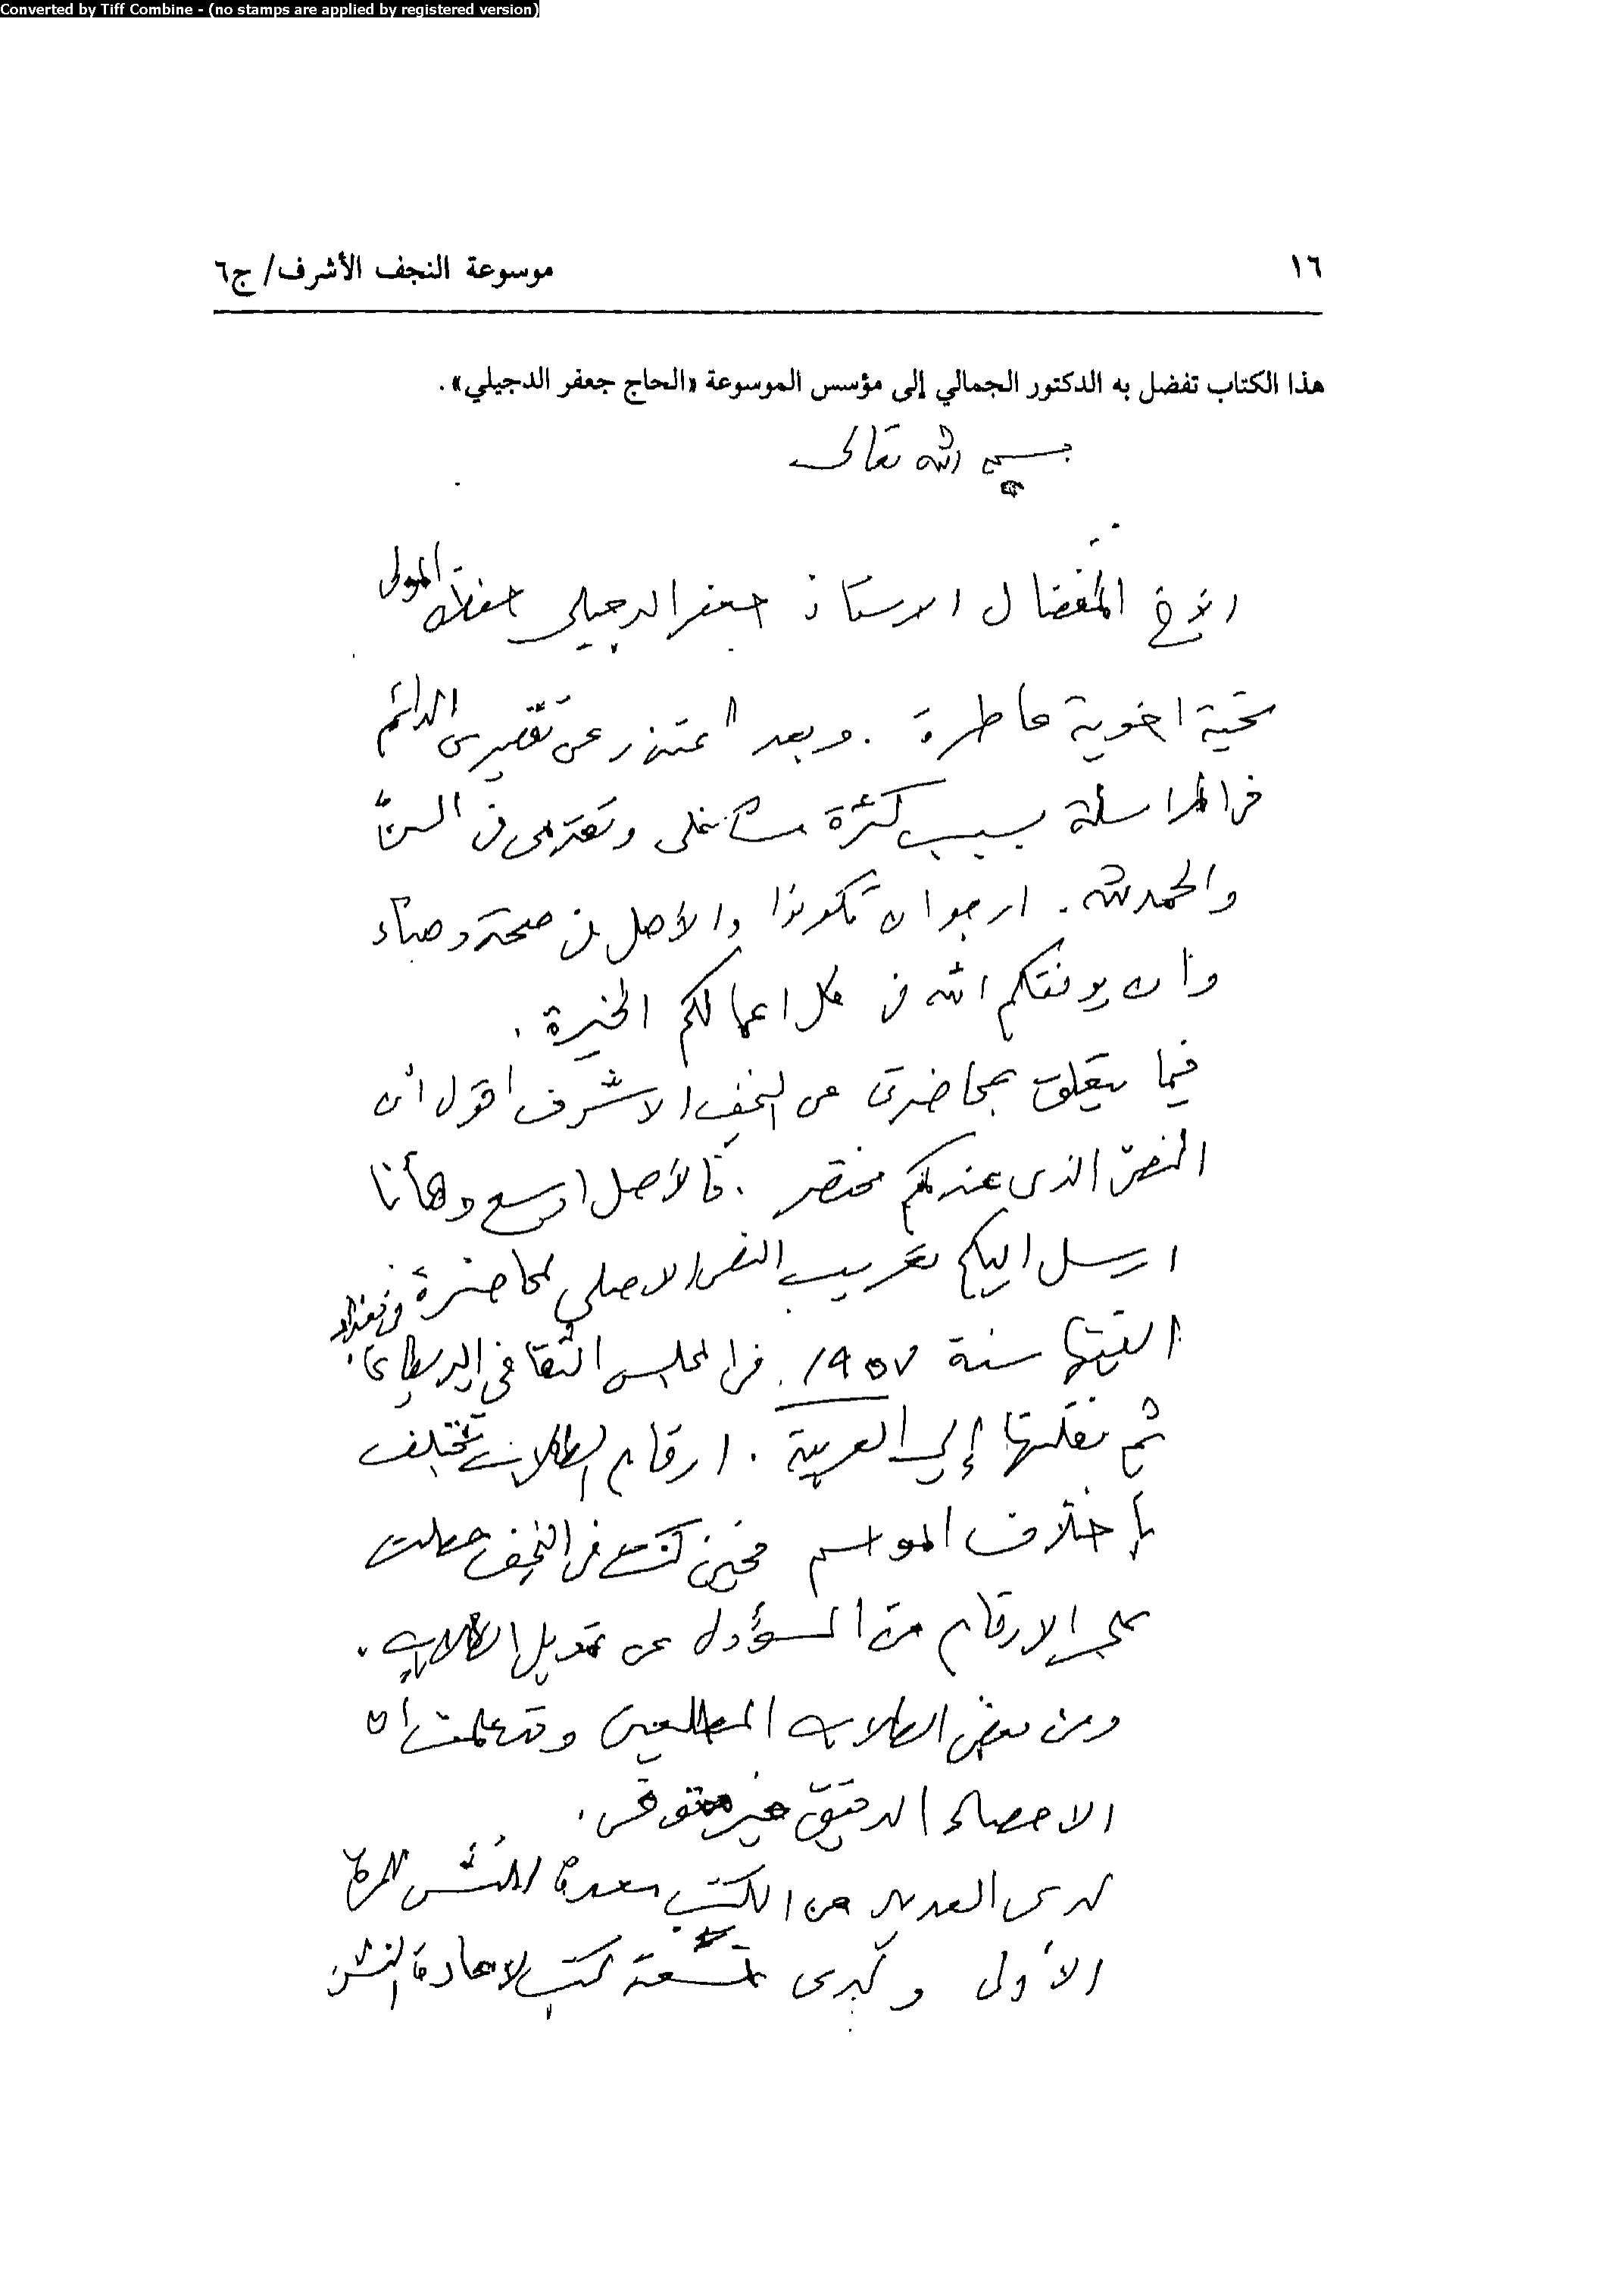 Converted by Tiff Combine - (no stamps are applied by registered version)
١٦
موسوعة النجف الأشرف/ ج٦
هذا الكتاب تفضل به الدكتور الجمالي إلى مؤسس الموسوعة «الحاج جعفر الدجيلي».
بسم الله تعالى
الاخ المفضال الاستاذ جعفر الدجيلي حفظه المولى
تحية اخوية عاطرة. وبعد اعتذر عن تقصيري الدائم
في المراسلة بسبب كثرة مشاغلي وتقدمي في السنّ
والحمد لله. ارجو ان تكونوا والأهل في صحة وهناء
وأن يوفقكم الله في كل اعمالكم الخيرة.
فيما يتعلق بمحاضرتي عن النجف الاشرف اقول أن
النصّ الذي عندكم مختصر. فالأصل اوسع وهأنا
ارسل اليكم تعريب النص الاصلي لمحاضرة في بغداد
القيتها سنة ١٩٥٧ في المجلس الثقافي البريطاني.
ثم نقلتها إلى العربية. ارقام الطلاب تختلف
بإختلاف المواسم فحين كنت في النجف حصلت
على الارقام من المسؤول عن تمويل الطلاب.
ومن بعض الطلاب المطلعين وقد علمت ان
الاحصاء الدقيق غير متوفر.
لدي العديد من الكتب معدة للنشر للمرة
الأولى ولدي تسعة كتب لاعادة النشر